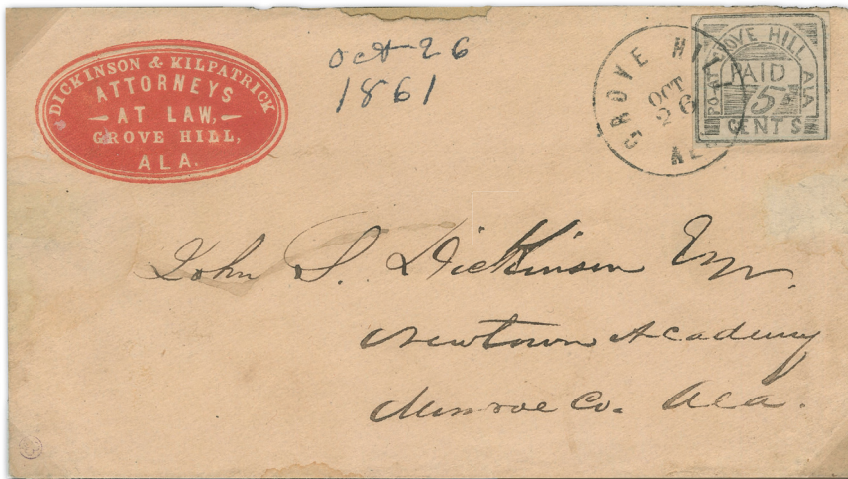 DICKINSON & KILPATRICK
ATTORNEYS
AT LAW,
GROVE HILL,
ALA.
Oct 26
1861
GROVE HILL
OCT
26
ALA
P.O. AT GROVE HILL ALA
PAID
5
CENTS
John S. Dickinson Esqr.
Newtown Academy
Monroe Co. Ala.